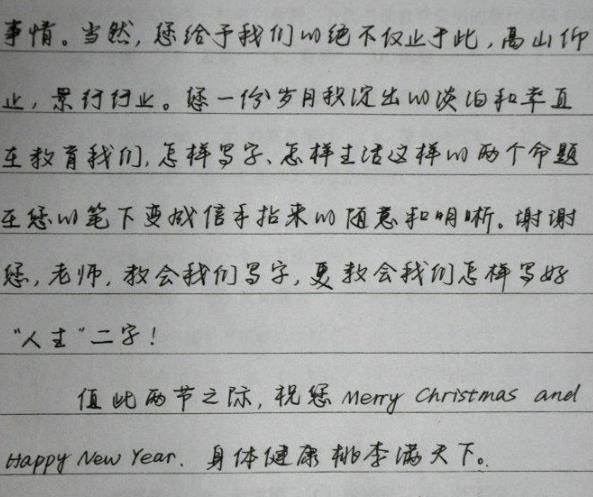 事情。当然，您给予我们的绝不仅止于此，高山仰
止，景行行止。您一份岁月积淀出的淡泊和率直
在教育我们，怎样写字、怎样生活这样的两个命题
在您的笔下变成信手拈来的随意和明晰。谢谢
您，老师，教会我们写字，更教会我们怎样写好
“人生”二字！
值此两节之际，祝您 Merry Christmas and
Happy New Year. 身体健康 桃李满天下。